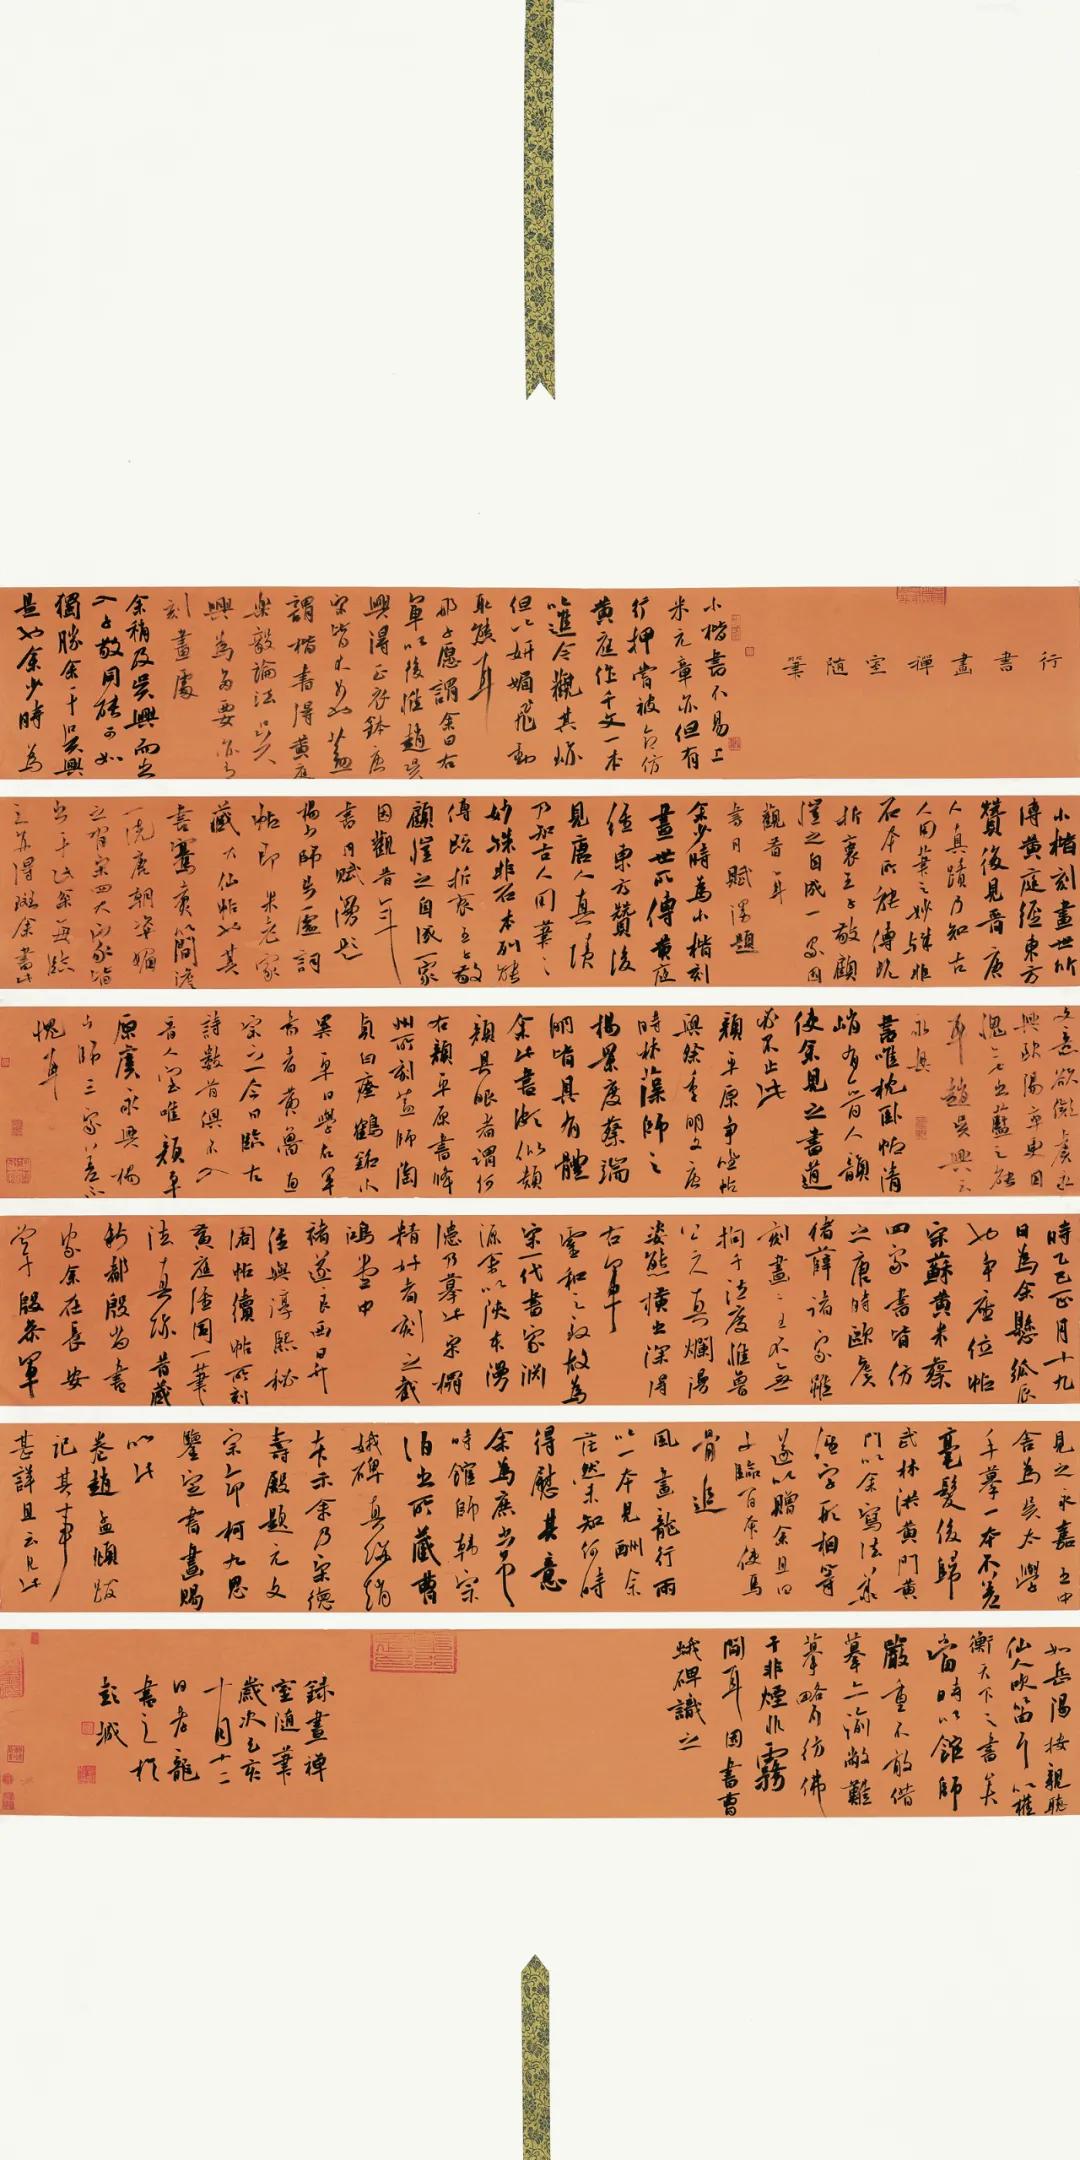 行書畫禪室隨筆
小楷書不易工
米元章亦但有
行押嘗被命仿
黃庭作千文一本
進令觀其跡
但以妍媚飛動
取態耳
邢子愿謂余曰右
軍以後惟趙吳
興得正衣鉢唐
宋皆不如也蓋
謂楷書得黃庭
樂毅論法吳
興為多要亦有
刻畫處
余稍及吳興而出
入子敬同能不如
獨勝余于吳興
是也余少時為
小楷刻畫世所
傳黃庭經東方
贊後見晉唐
人真蹟乃知古
人用筆之妙殊非
石本所能傳既
折衷王子敬顧
愷之自成一家因
觀昔年
書月賦漫題
余少時為小楷刻
畫世所傳黃庭
經東方贊後
見唐人真蹟
乃知古人用筆之
妙殊非石本所能
傳既折衷王子敬
顧愷之自成一家
因觀昔年
書月賦漫題
楊少師步虛詞
帖即米老家
藏大仙帖也其
書騫翥簡澹
一洗唐朝姿媚
之習宋四大家皆
出于此余每臨
文意欲
興歐陽率更因
愧其出藍之能
耳趙吳興云
永興
書唯枕臥帖清
峭有晉人韻
使余見之書道
必不止此
顏平原爭坐帖
興徐季明文唐
時林藻師之
楊景度蔡端
明皆具有體
余此書漸似顏
類具眼者謂何
右顏平原書
州所刻蓋師陶
貞白瘞鶴銘小
異平日學右軍
書者黃魯直
宗之今日臨古
詩數首俱不入
晉人室唯顏平
原虞永興楊
少師三家差不
愧耳
時乙巳正月十九
日為余懸弧辰
也爭座位帖
宋蘇黃米蔡
四家書皆仿
之唐時歐虞
褚薛諸家雖
刻畫二王不無
拘于法度惟魯
公天真爛漫
姿態橫出深得
右軍
靈和之致故為
宋一代書家淵
源余以陝本漫
漶乃摹此宋榻
精好者刻之戲
鴻堂中
褚遂良西昇
經與淳熙秘
閣帖續帖所刻
黃庭經同一筆
法真跡昔藏
新都殷尚書
家余在長安
於殷參軍
見之永嘉王中
舍為吳太學
手摹一本不差
毫髮後歸
武林洪黃門黃
門以余寫法華
經字形相等
遂以贈余且曰
子臨百本使馬
骨追
風畫龍行雨
以一本見酬余
茫然未知何時
得慰其意
余為庶常
時館師韓宗
伯出所藏曹
娥碑真跡絹
本示余乃宋德
壽殿題元文
宗命柯九思
鑒定書畫賜
以此
卷趙孟頫跋
記其事
甚詳且云見此
如岳陽樓親聽
仙人吹笛可以權
衡天下之書矣
當時以館師
嚴重不敢借
摹亦渝敝難
摹略有彷彿
于非煙非霧
間耳因書曹
娥碑識之
錄畫禪
室隨筆
歲次己亥
十月十二
日孝龍
書之於
彭城